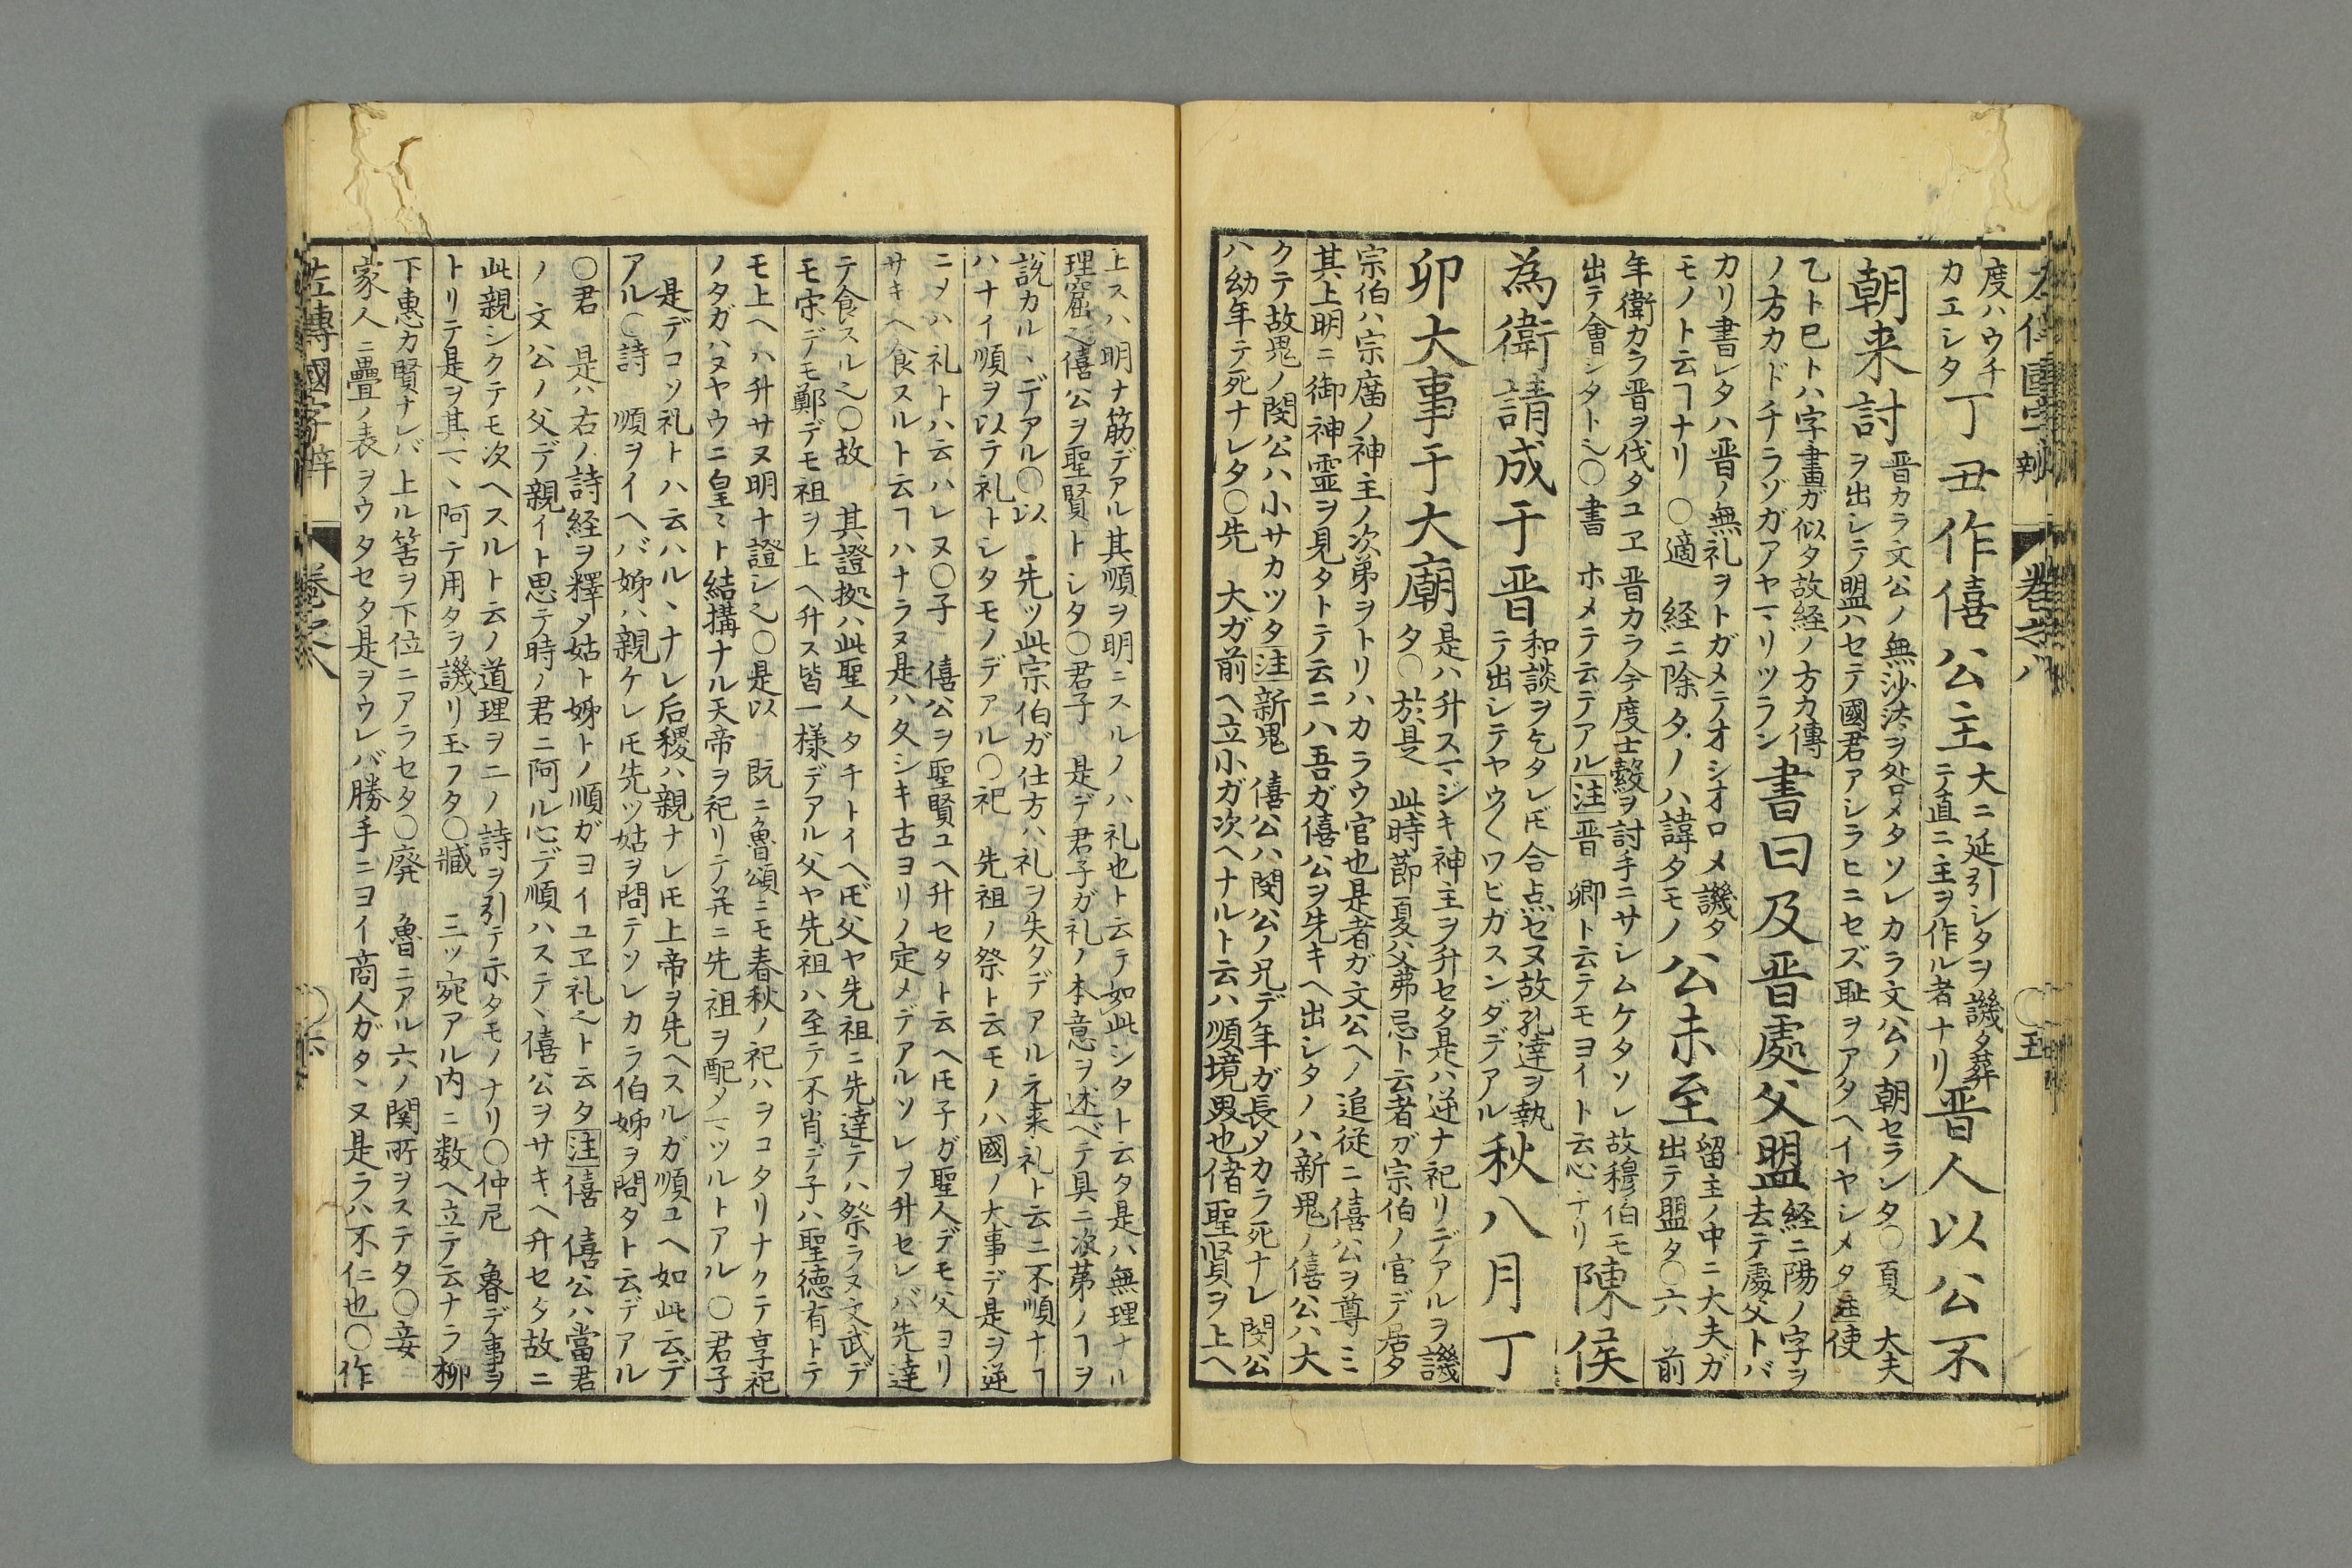 左傳國字辨 卷之八 〇五
度ハウチ
カエシタ
丁丑作僖公主
大ニ延引シタヲ譏タ葬
テ直ニ主ヲ作ル者ナリ
晋人以公不
朝来討
晋カラ文公ノ無沙汰ヲ咎メタソレカラ文公ノ朝セラレタ〇夏 大夫
ヲ出シテ盟ハセテ國君アシラヒニセズ耻ヲアタヘイヤシメタ注使
乙ト巳トハ字畫ガ似タ故経ノ方カ傳
ノ方カドチラゾガアヤマリツラン
書曰及晋處父盟
経ニ陽ノ字ヲ
去テ處父トバ
カリ書レタハ晋ノ無礼ヲトガメテオシオロメ譏タ
モノト云ヿナリ 〇適 経ニ除タノハ諱タモノ
公未至
留主ノ中ニ大夫ガ
出テ盟タ〇六 前
年衛カラ晋ヲ伐タユヱ晋カラ今度士縠ヲ討手ニサシムケタソレ故穆伯モ
出テ會シタト也〇書 ホメテ云デアル注晋 卿ト云テモヨイト云心ナリ
陳侯
為衛請成于晋
和談ヲ乞タレ𪜈合点セヌ故孔達ヲ執
テ出シテヤウ〱ワビガスンダデアル
秋八月丁
卯大事于大廟
是ハ升スマジキ神主ヲ升セタ是ハ逆ナ祀リデアルヲ譏
タ〇於是 此時節夏父弗忌ト云者ガ宗伯ノ官デ居タ
宗伯ハ宗廟ノ神主ノ次第ヲトリハカラウ官也是者ガ文公ヘノ追従ニ僖公ヲ尊ミ
其上明ニ御神霊ヲ見タトテ云ニハ吾ガ僖公ヲ先キヘ出シタノハ新鬼ノ僖公ハ大
クテ故鬼ノ閔公ハ小サカツタ注新鬼 僖公ハ閔公ノ兄デ年ガ長メカラ死ナレ閔公
ハ幼年テ死ナレタ〇先 大ガ前ヘ立小ガ次ヘナルト云ハ順境界也偖聖賢ヲ上ヘ
上スハ明ナ筋デアル其順ヲ明ニスルノハ礼也ト云テ如此シタト云タ是ハ無理ナル
理窟也僖公ヲ聖賢トシタ〇君子 是デ君子ガ礼ノ本意ヲ述ベテ具ニ次第ノヿヲ
説カルヽデアル〇以 先ツ此宗伯ガ仕方ハ礼ヲ失タデアル元来礼ト云ニ不順ナヿ
ハナイ順ヲ以テ礼トシタモノデアル〇祀 先祖ノ祭ト云モノハ國ノ大事デ是ヲ逆
ニメハ礼トハ云ハレヌ〇子 僖公ヲ聖賢ユヘ升セタト云ヘ𪜈子ガ聖人デモ父ヨリ
サキヘ食スルト云ヿハナラヌ是ハ久シキ古ヨリノ定メデアルソレヲ升セレバ先達
テ食スル也〇故 其證拠ハ此聖人タチトイヘ𪜈父ヤ先祖ニ先達テハ祭ラヌ文武デ
モ宋デモ鄭デモ祖ヲ上ヘ升ス皆一様デアル父ヤ先祖ハ至テ不肖デ子ハ聖徳有トテ
モ上ヘハ升サヌ明ナ證シ也〇是以 既ニ魯頌ニモ春秋ノ祀ハヲコタリナクテ享祀
ノタガハヌヤウニ皇〻ト結搆ナル天帝ヲ祀リテ并ニ先祖ヲ配メマツルトアル〇君子
是デコソ礼トハ云ハルヽナレ后稷ハ親ナレ𪜈上帝ヲ先ヘスルガ順ユヘ如此云デ
アル〇詩 順ヲイヘバ姊ハ親ケレ𪜈先ツ姑ヲ問テソレカラ伯姊ヲ問タト云デアル
〇君 是ハ右ノ詩経ヲ釋メ姑ト姊トノ順ガヨイユヱ礼也ト云タ注僖 僖公ハ當君
ノ文公ノ父デ親イト思テ時ノ君ニ阿ル心デ順ハステヽ僖公ヲサキヘ升セタ故ニ
此親シクテモ次ヘスルト云ノ道理ヲ二ノ詩ヲ引テ示タモノナリ〇仲尼 魯デ事ヲ
トリテ是ヲ其マヽ阿テ用タヲ譏リ玉フタ〇臧 三ツ宛アル内ニ数ヘ立テ云ナラ柳
下惠カ賢ナレバ上ル筈ヲ下位ニアラセタ〇廃 魯ニアル六ノ関所ヲステタ〇妾
家人ニ疊ノ表ヲウタセタ是ヲウレバ勝手ニヨイ商人ガタヽヌ是ラハ不仁也〇作
左傳國字辨 卷之八 〇六